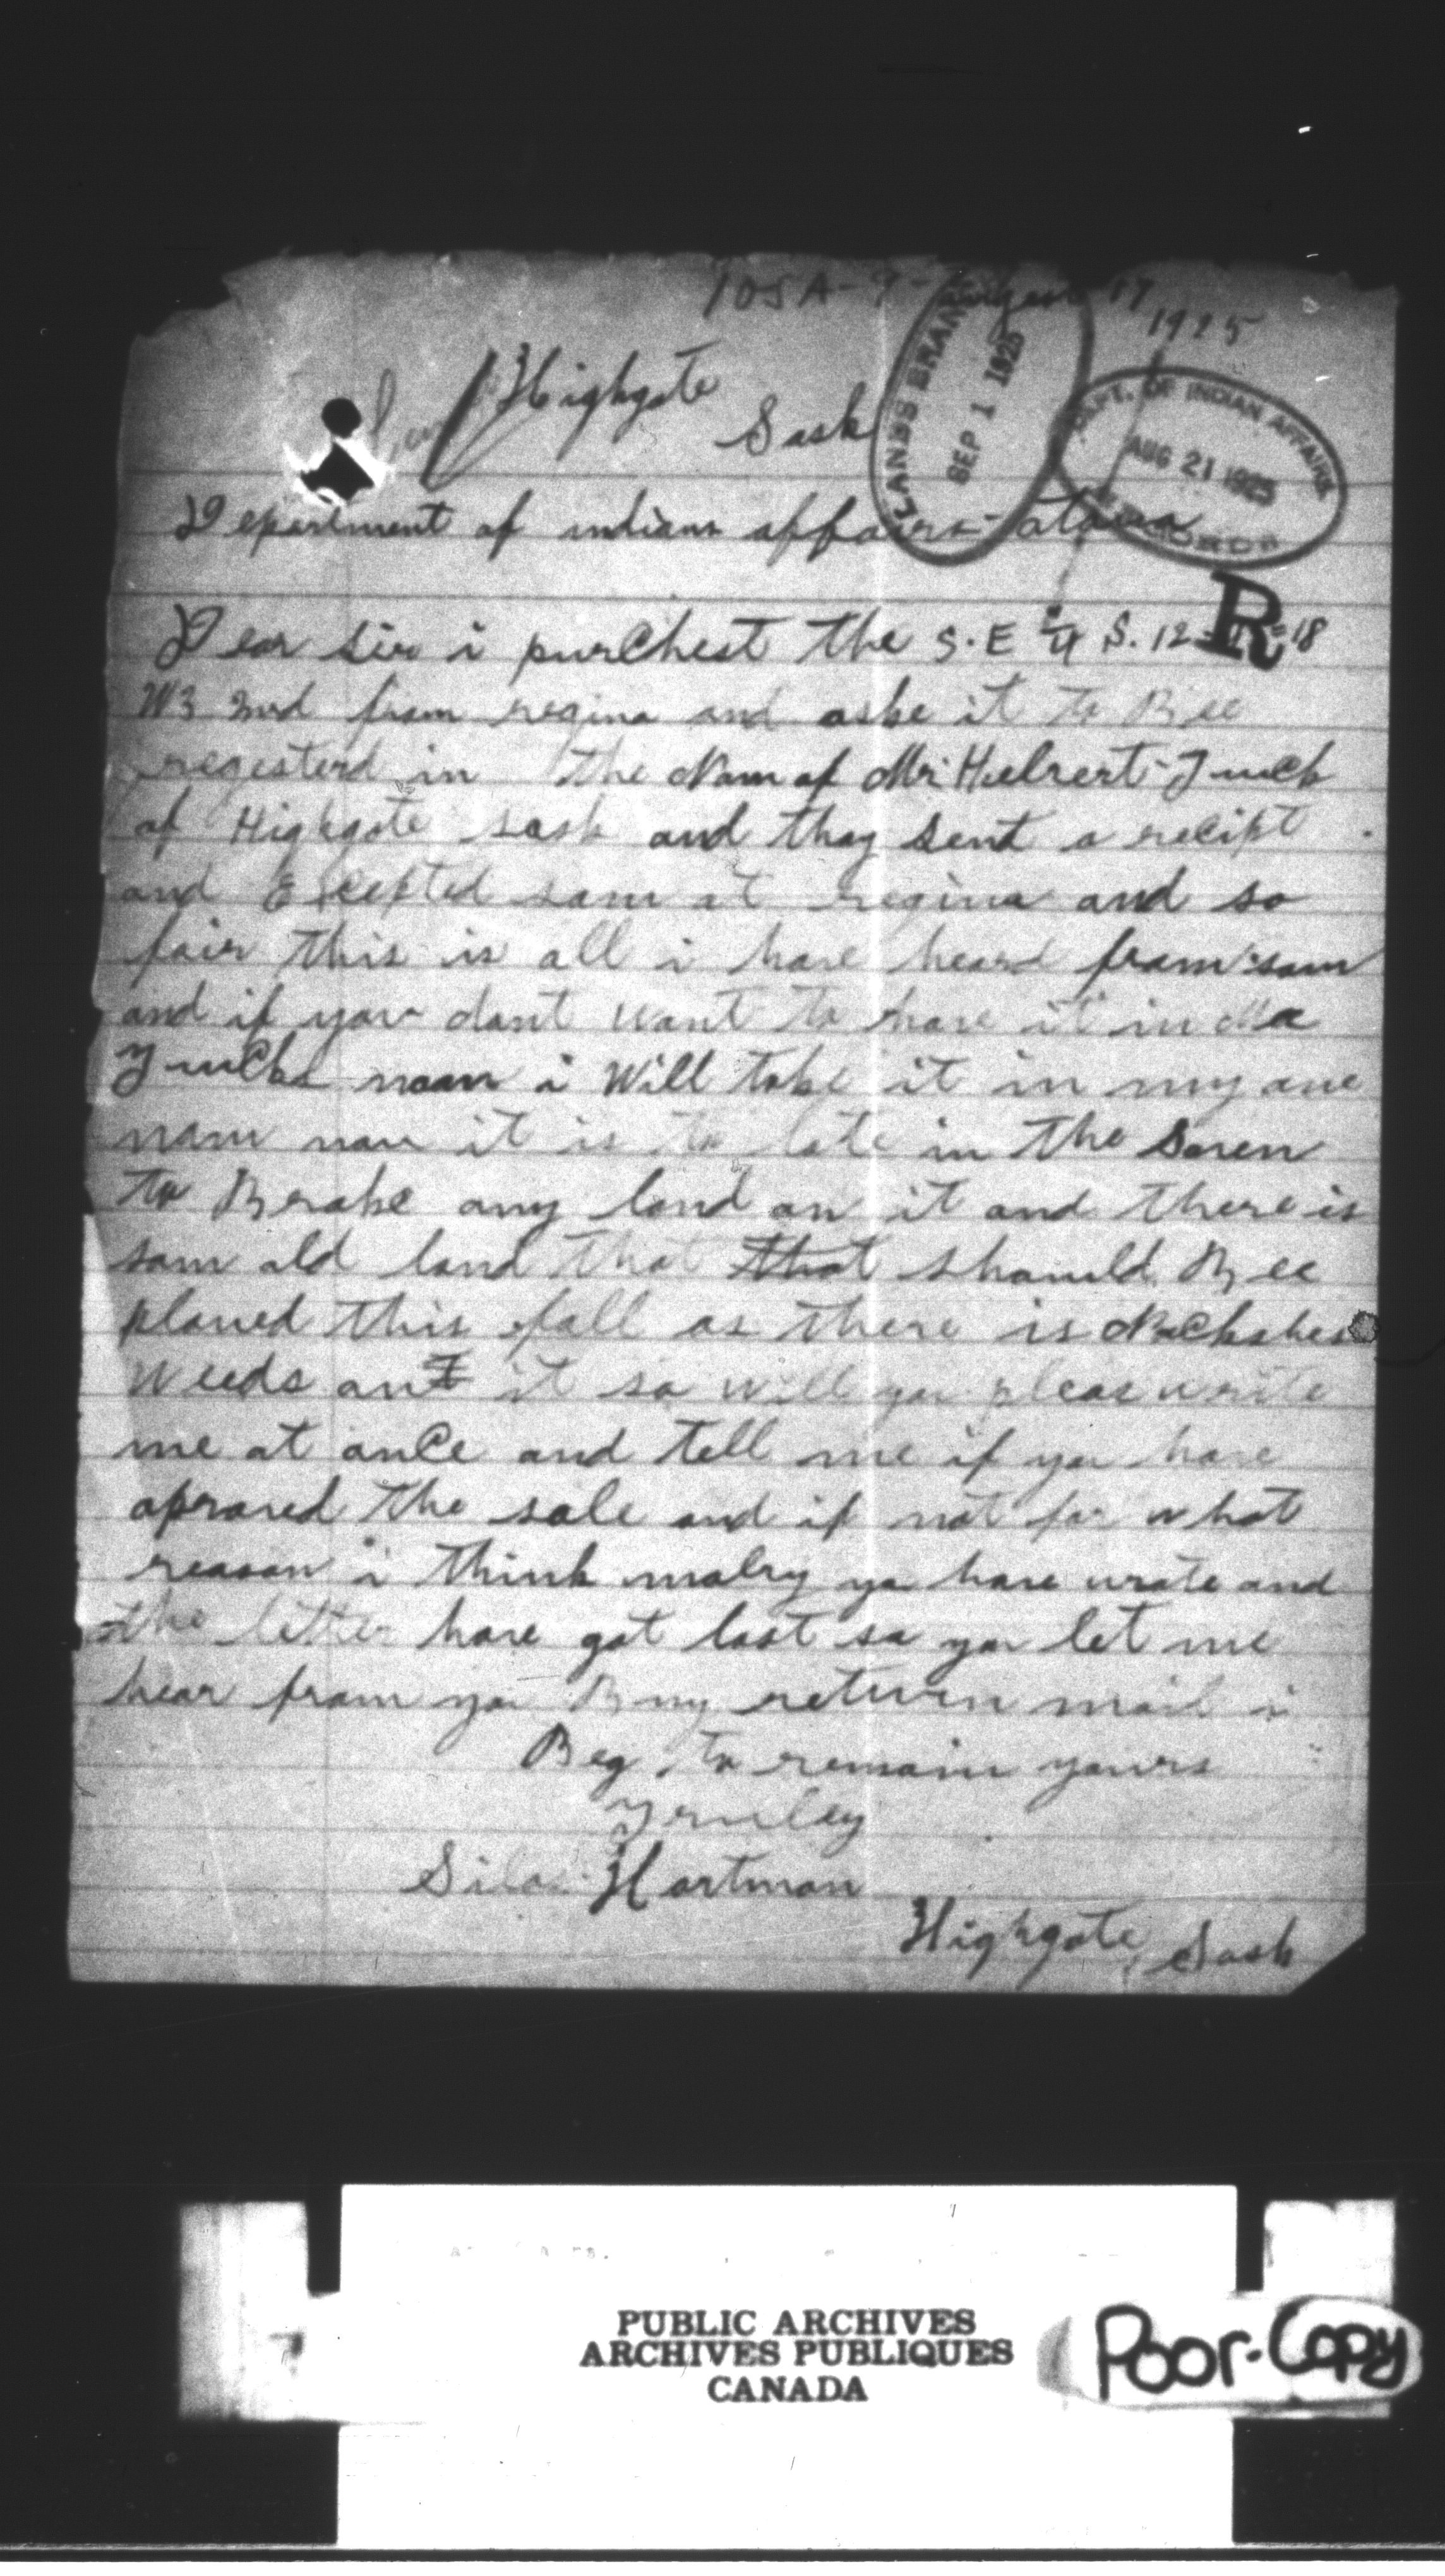 105A-7- August 17
1925
Highgate
Sask
LANDS BRANCH
SEP 1 1925
DEPT. OF INDIAN AFFAIRS
AUG 21 1925
RECORDS
Department of indians affairs - otawa
R
Dear Sir i purChest the S.E ¼ S. 12 18
W3 from regina and aske it to Bee
regesterd in the Nam of Mr Hulrert Tuck
of Highgate sask and thay sent a recipt
and Excepted sam at regina and so
fair this is all i have heard from sam
and if you dont want to have it in Mr
Tucks naam i Will take it in my one
nam now it is to late in the Sosen
to Brake any land on it and there is
som old land that that should Bee
plowed this fall as there is
weeds ont it so will you pleas write
me at onCe and tell me if you have
aproved the sale and if not for what
reason i think malby you have wrote and
the letter have got lost so you let me
hear from you By return mail i
Beg to remain yours
Truley
Silas Hartman
Highgate, Sask
PUBLIC ARCHIVES
ARCHIVES PUBLIQUES
CANADA
Poor-Copy